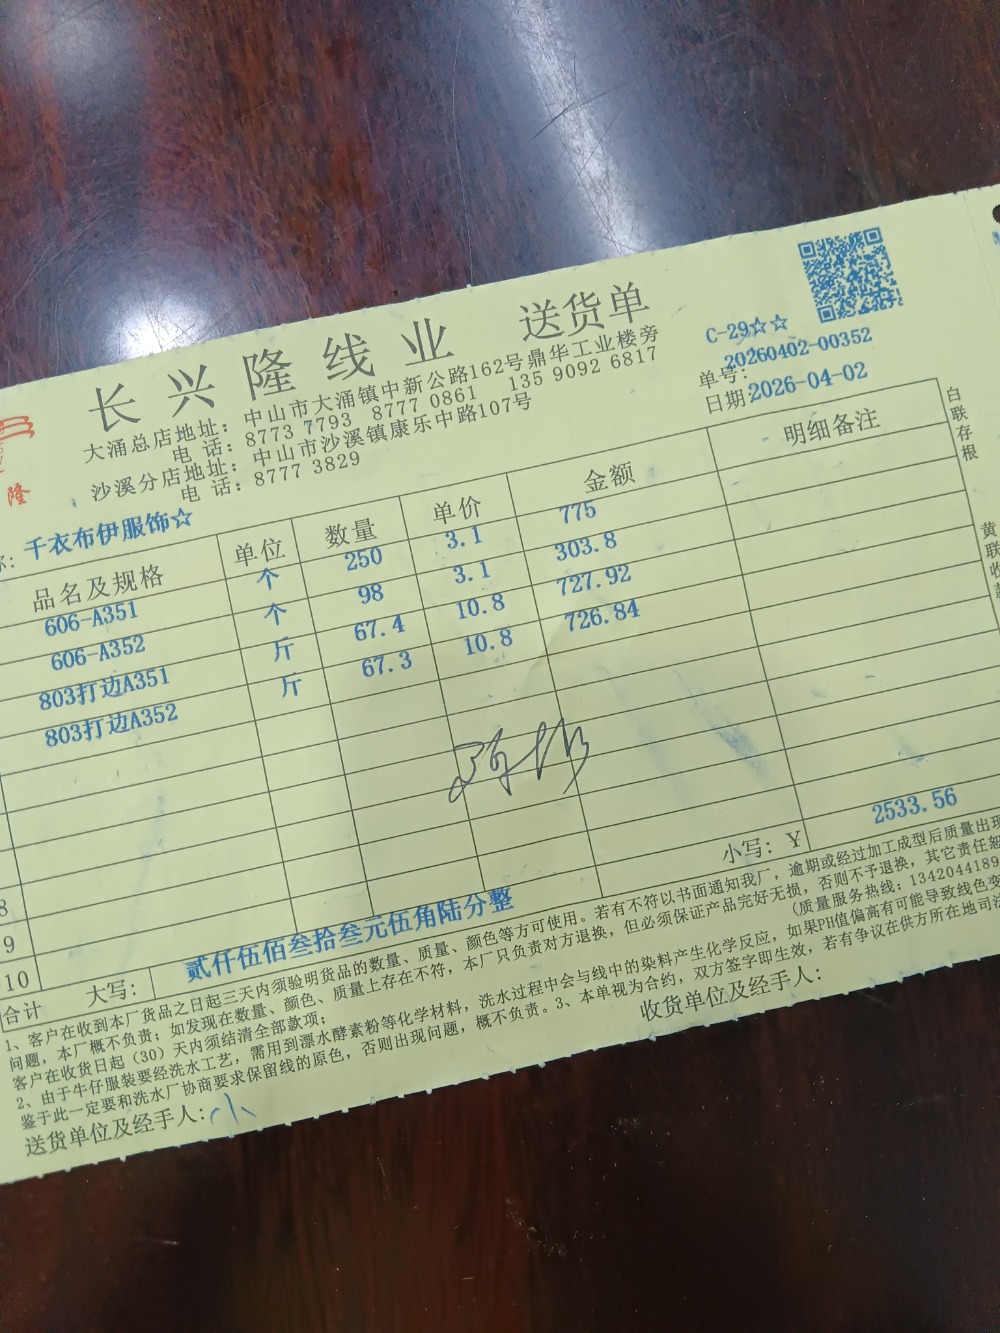 长兴隆线业 送货单
C-29☆☆
大涌总店地址: 中山市大涌镇中新公路162号鼎华工业楼旁
单号: 20260402-00352
电 话: 8773 7793 8777 0861 135 9092 6817
日期: 2026-04-02
沙溪分店地址: 中山市沙溪镇康乐中路107号
电 话: 8777 3829
隆
称: 千衣布伊服饰☆
品名及规格 单位 数量 单价 金额 明细备注
606-A351 个 250 3.1 775
606-A352 个 98 3.1 303.8
803打边A351 斤 67.4 10.8 727.92
803打边A352 斤 67.3 10.8 726.84
8
9
10
小写: Y 2533.56
合计 大写: 贰仟伍佰叁拾叁元伍角陆分整
1、客户在收到本厂货品之日起三天内须验明货品的数量、质量、颜色等方可使用。若有不符以书面通知我厂,逾期或经过加工成型后质量出现
问题,本厂概不负责;如发现在数量、颜色、质量上存在不符,本厂只负责对方退换,但必须保证产品完好无损,否则不予退换,其它责任恕
客户在收货日起(30)天内须结清全部款项;
(质量服务热线: 134204418
2、由于牛仔服装要经洗水工艺,需用到漂水酵素粉等化学材料,洗水过程中会与线中的染料产生化学反应,如果PH值偏高有可能导致线色变
鉴于此一定要和洗水厂协商要求保留线的原色,否则出现问题,概不负责。3、本单视为合约,双方签字即生效,若有争议在供方所在地司法
送货单位及经手人: 小
收货单位及经手人:
白联存根
黄联收款